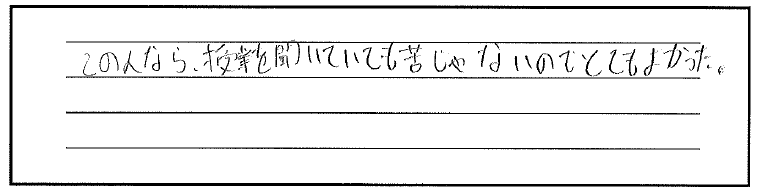 この人なら、授業を聞いていても苦じゃないのでとてもよかった。